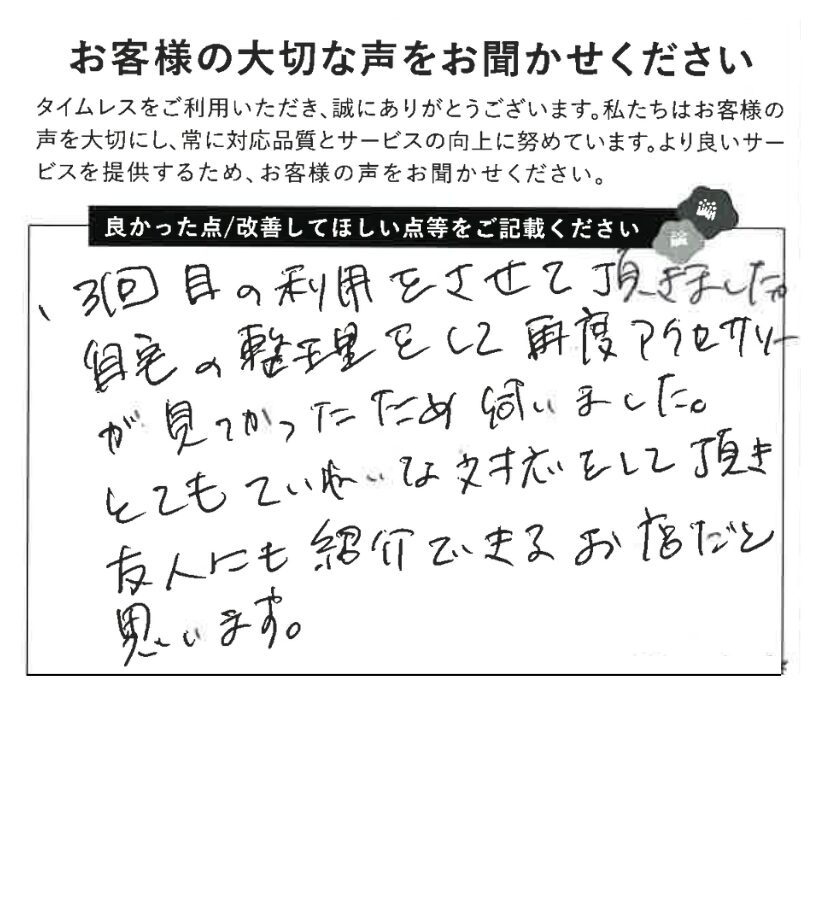 お客様の大切な声をお聞かせください
タイムレスをご利用いただき、誠にありがとうございます。私たちはお客様の
声を大切にし、常に対応品質とサービスの向上に努めています。より良いサー
ビスを提供するため、お客様の声をお聞かせください。
良かった点/改善してほしい点等をご記載ください
、3回目の利用をさせて頂きました。
自宅の整理をして再度アクセサリー
が見つかったため伺いました。
とてもていねいな対応をして頂き
友人にも紹介できるお店だと
思います。